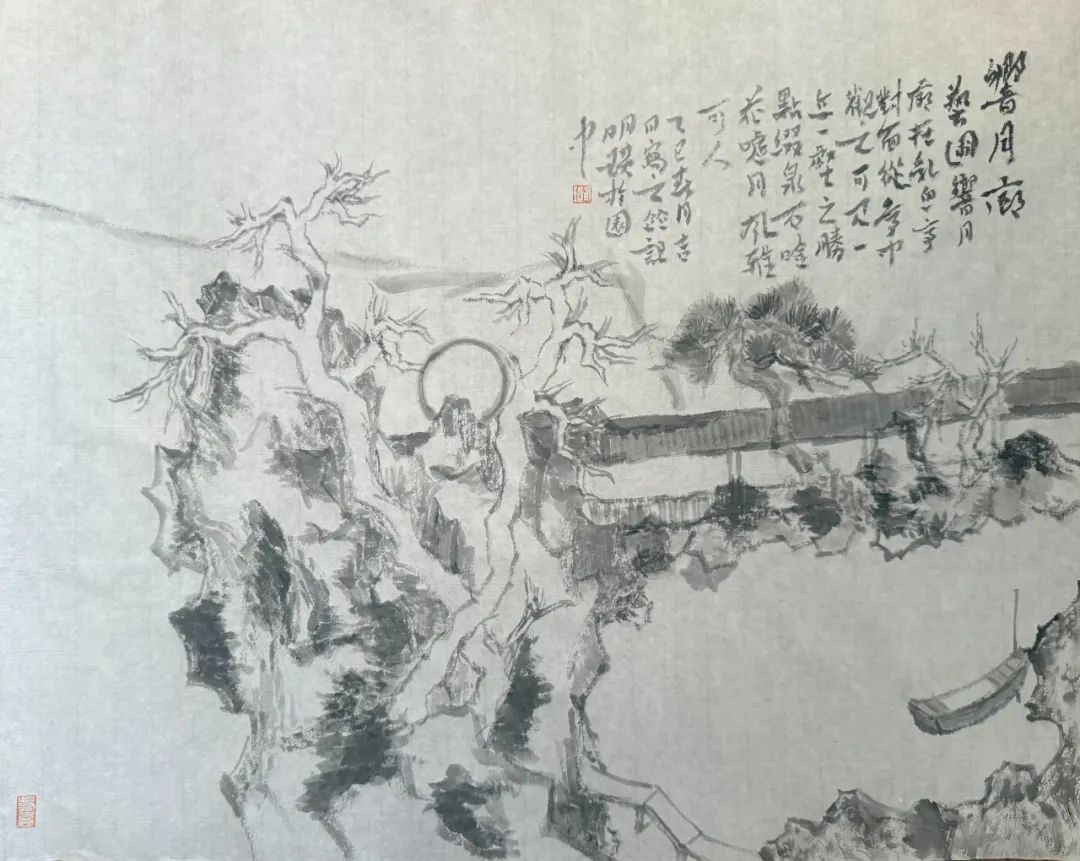 響月廊
藝圃響月
廊在乳魚亭
對面從亭中
觀之可見一
丘一壑之勝
點綴泉石唫
花嘘月風雅
可人
乙巳春月吉
日寫之並記
明於園
中